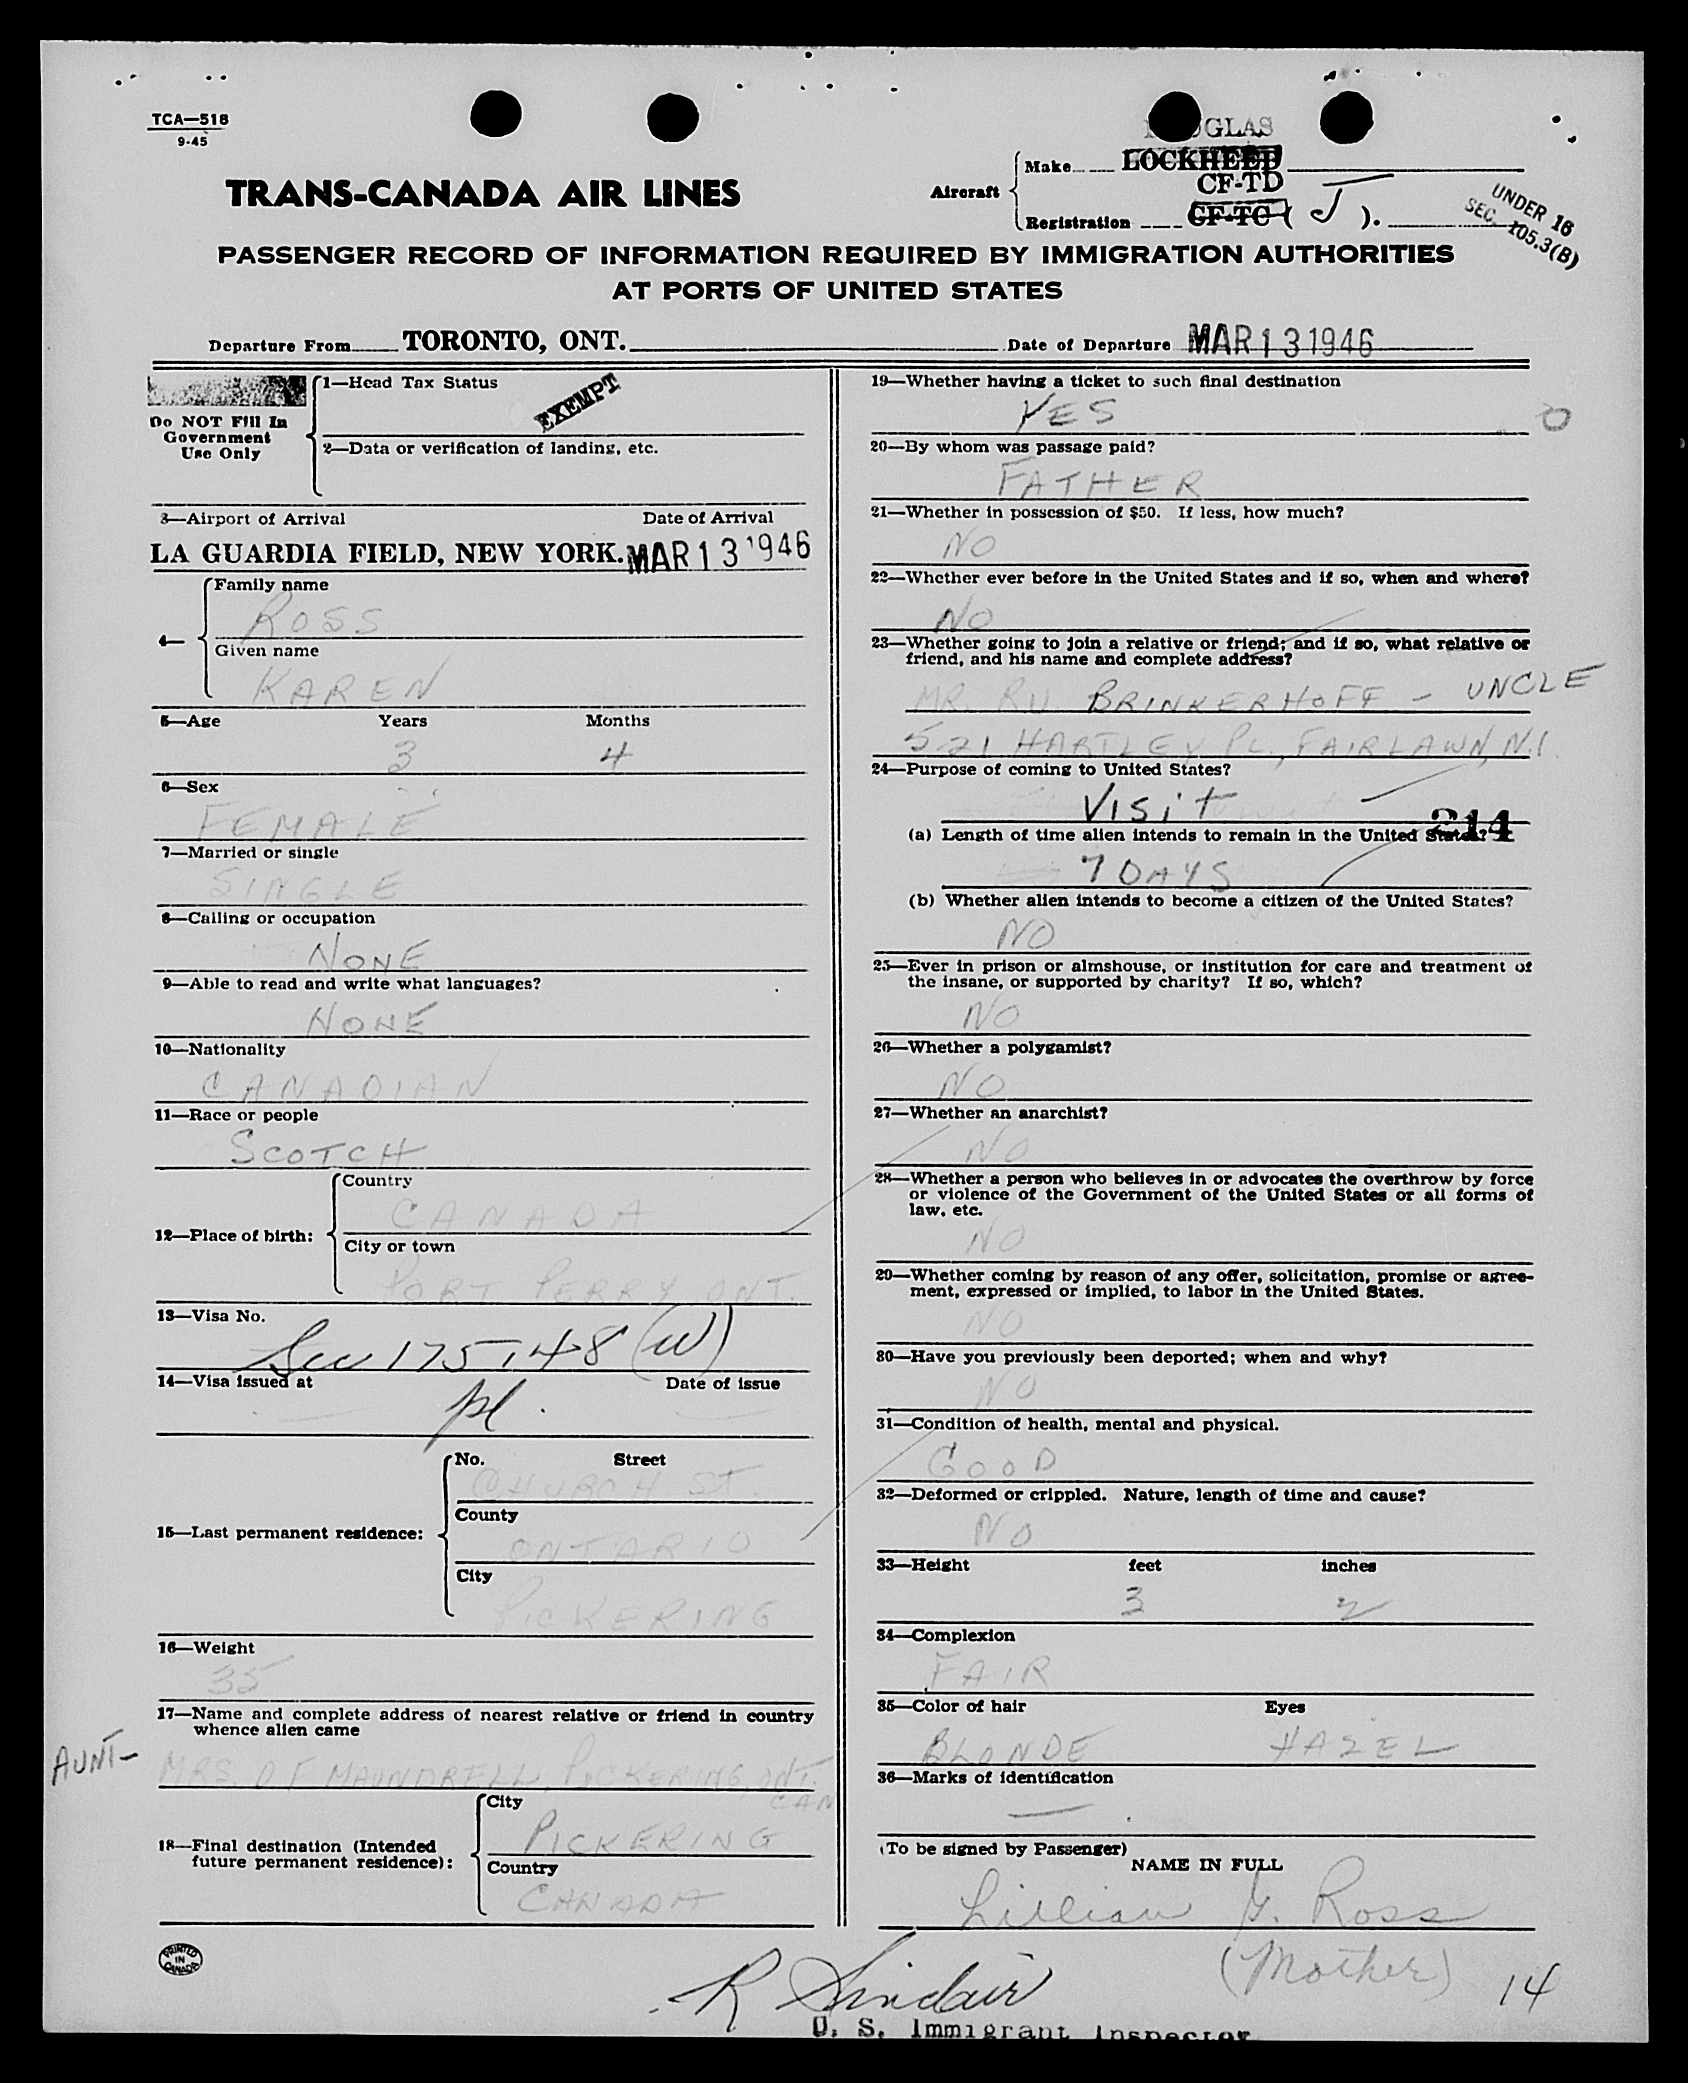 TCA—518
9-45
TRANS-CANADA AIR LINES
Aircraft
Make
DOUGLAS
LOCKHEED
CF-TD
Registration CF-TC ( J ).
UNDER 16
SEC. 105.3(B)
PASSENGER RECORD OF INFORMATION REQUIRED BY IMMIGRATION AUTHORITIES
AT PORTS OF UNITED STATES
Departure From TORONTO, ONT. Date of Departure MAR 13 1946
Do NOT Fill In
Government
Use Only
1—Head Tax Status
EXEMPT
2—Data or verification of landing, etc.
3—Airport of Arrival Date of Arrival
LA GUARDIA FIELD, NEW YORK. MAR 13 1946
4—
Family name
ROSS
Given name
KAREN
5—Age Years Months
3 4
6—Sex
FEMALE
7—Married or single
SINGLE
8—Calling or occupation
NONE
9—Able to read and write what languages?
NONE
10—Nationality
CANADIAN
11—Race or people
SCOTCH
12—Place of birth:
Country
CANADA
City or town
PORT PERRY ONT.
13—Visa No.
Sec 175.148 (W)
14—Visa issued at Date of issue
pl.
15—Last permanent residence:
No. Street
CHURCH ST.
County
ONTARIO
City
PICKERING
16—Weight
35
17—Name and complete address of nearest relative or friend in country
whence alien came
AUNT— MRS. D F MAUNDRELL, PICKERING, ONT.
CAN
18—Final destination (Intended
future permanent residence):
City
PICKERING
Country
CANADA
19—Whether having a ticket to such final destination
YES
0
20—By whom was passage paid?
FATHER
21—Whether in possession of $50. If less, how much?
NO
22—Whether ever before in the United States and if so, when and where?
NO
23—Whether going to join a relative or friend; and if so, what relative or
friend, and his name and complete address?
MR. R.U. BRINKERHOFF — UNCLE
521 HARTLEY PL., FAIRLAWN, N.J.
24—Purpose of coming to United States?
VISIT
214
(a) Length of time alien intends to remain in the United States?
7 DAYS
(b) Whether alien intends to become a citizen of the United States?
NO
25—Ever in prison or almshouse, or institution for care and treatment of
the insane, or supported by charity? If so, which?
NO
26—Whether a polygamist?
NO
27—Whether an anarchist?
NO
28—Whether a person who believes in or advocates the overthrow by force
or violence of the Government of the United States or all forms of
law, etc.
NO
29—Whether coming by reason of any offer, solicitation, promise or agree-
ment, expressed or implied, to labor in the United States.
NO
30—Have you previously been deported; when and why?
NO
31—Condition of health, mental and physical.
GOOD
32—Deformed or crippled. Nature, length of time and cause?
NO
33—Height feet inches
3 2
34—Complexion
FAIR
35—Color of hair Eyes
BLONDE HAZEL
36—Marks of identification
—
(To be signed by Passenger)
NAME IN FULL
Lillian G. Ross
(Mother)
14
PRINTED
IN
CANADA
R Sinclair
U. S. Immigrant Inspector